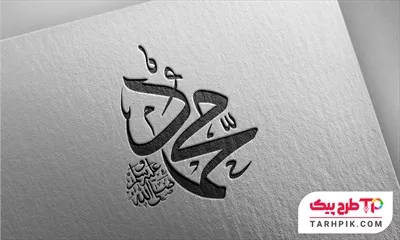 محمد
صلى الله عليه وسلم
طرح پیک
TARHPIK.COM